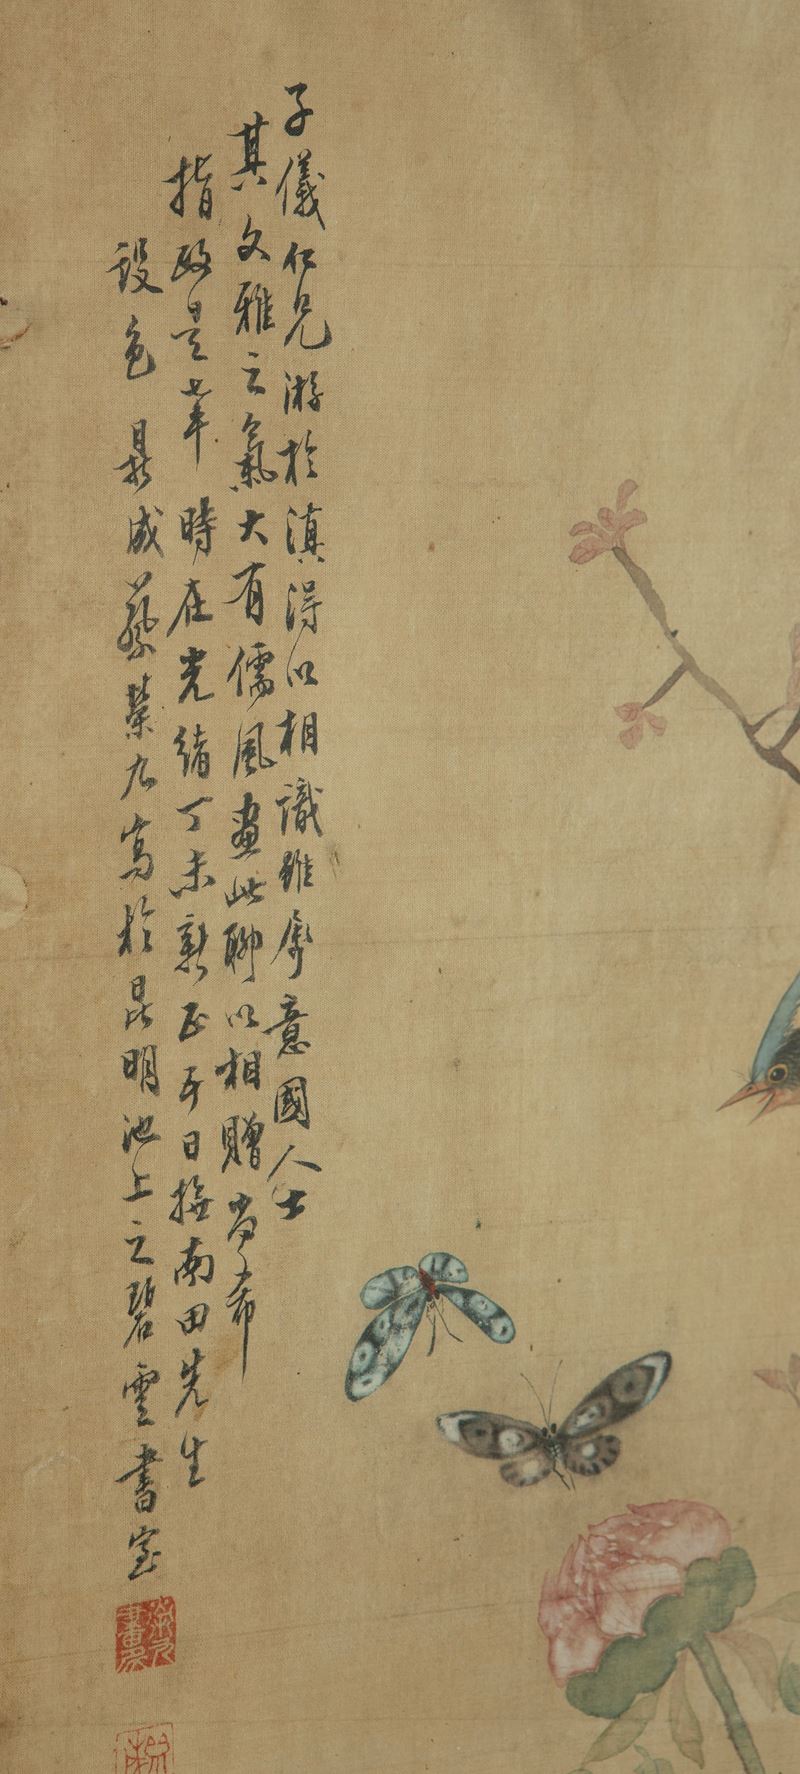 子儀仁兄游於滇得以相識雖屬意國人士
其文雅之氣大有儒風畫此聊以相贈尚希
指政是幸 時在光緒丁未新正 日撫南田先生
設色 昆 蔡榮九寫於昆明池上之碧雲書室